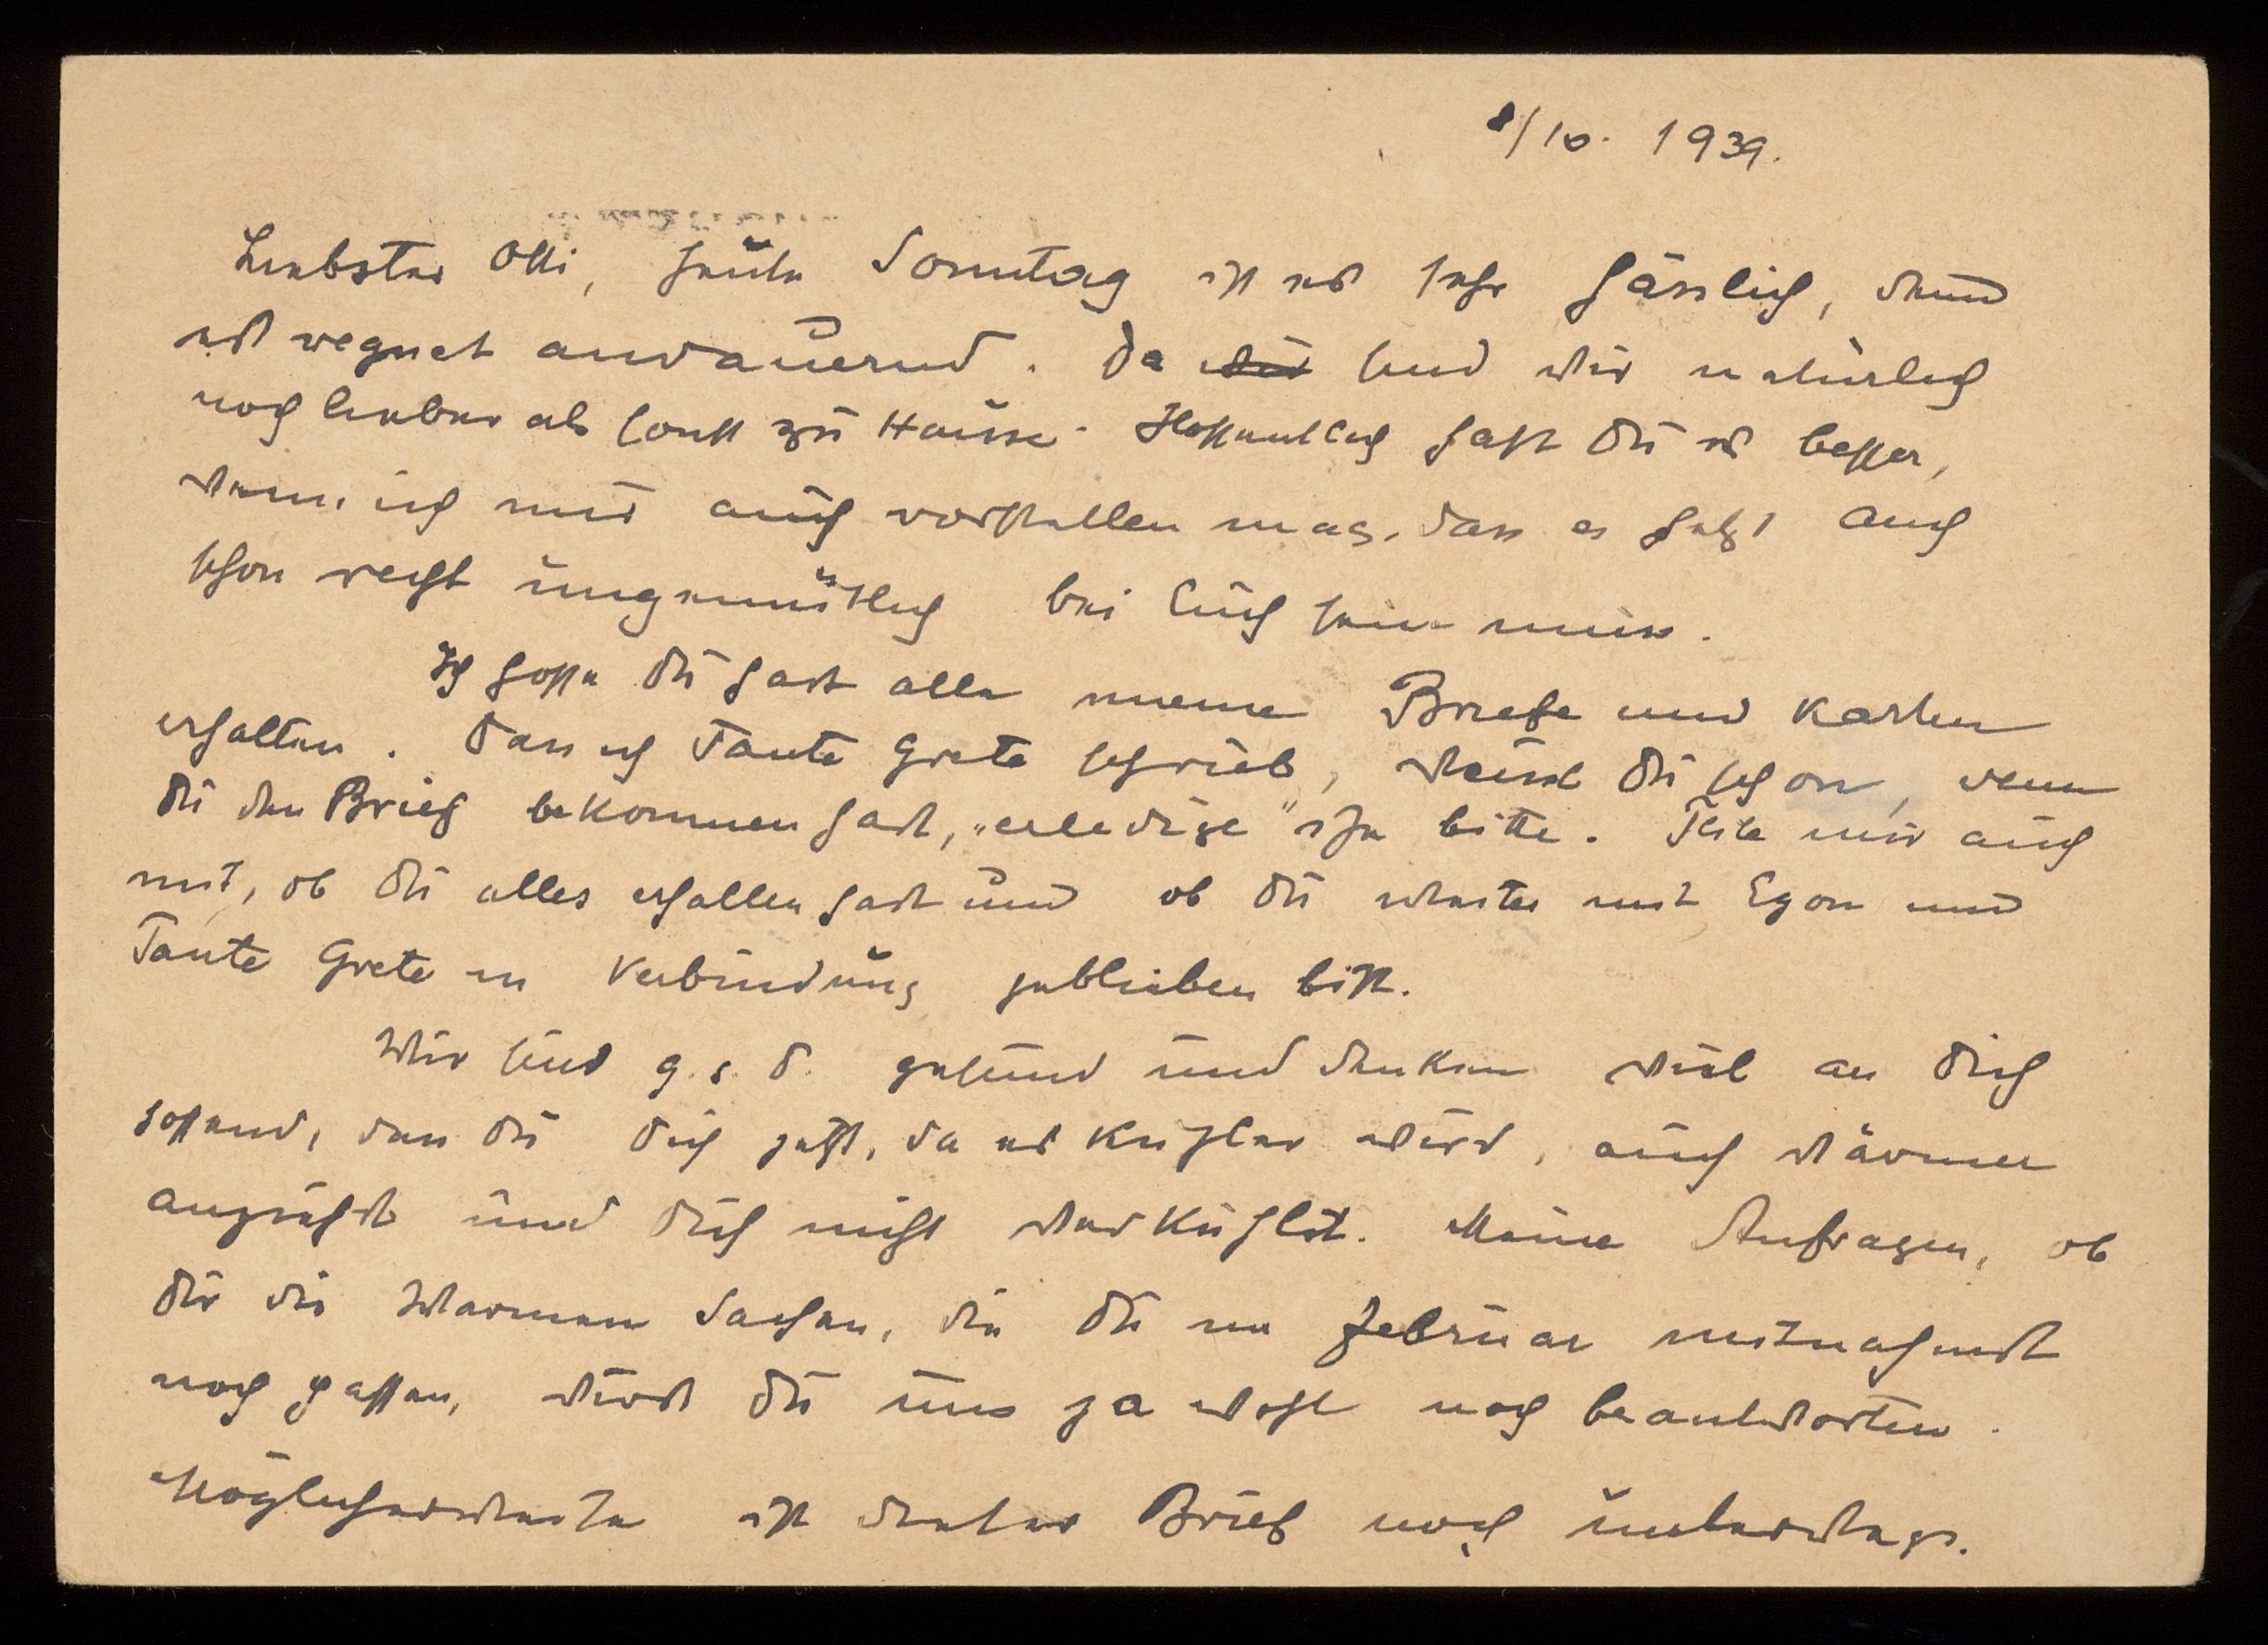 8/10. 1939.
Liebster Otti, heute Sonntag ist es sehr hässlich, denn
es regnet andauernd. Da sind wir natürlich
noch lieber als sonst zu Hause. Hoffentlich hast Du es besser,
wenn ich mir auch vorstellen mag, dass es jetzt auch
schon recht ungemütlich bei Euch sein muss.
Ich hoffe Du hast alle meine Briefe und Karten
erhalten. Dass ich Tante Grete schrieb, weisst Du schon, wenn
Du den Brief bekommen hast, „erledige" ihn bitte. Teile mir auch
mit, ob Du alles erhalten hast und ob Du weiter mit Egon und
Tante Grete in Verbindung geblieben bist.
Wir sind g. s. d. gesund und denken viel an Dich
hoffend, dass Du Dich jetzt, da es kühler wird, auch wärmer
anziehst und Dich nicht verkühlst. Meine Anfragen, ob
Dir die warmen Sachen, die Du im Februar mitnahmst
noch passen, wirst Du uns ja wohl noch beantworten.
Möglicherweise ist dieser Brief noch unterwegs.